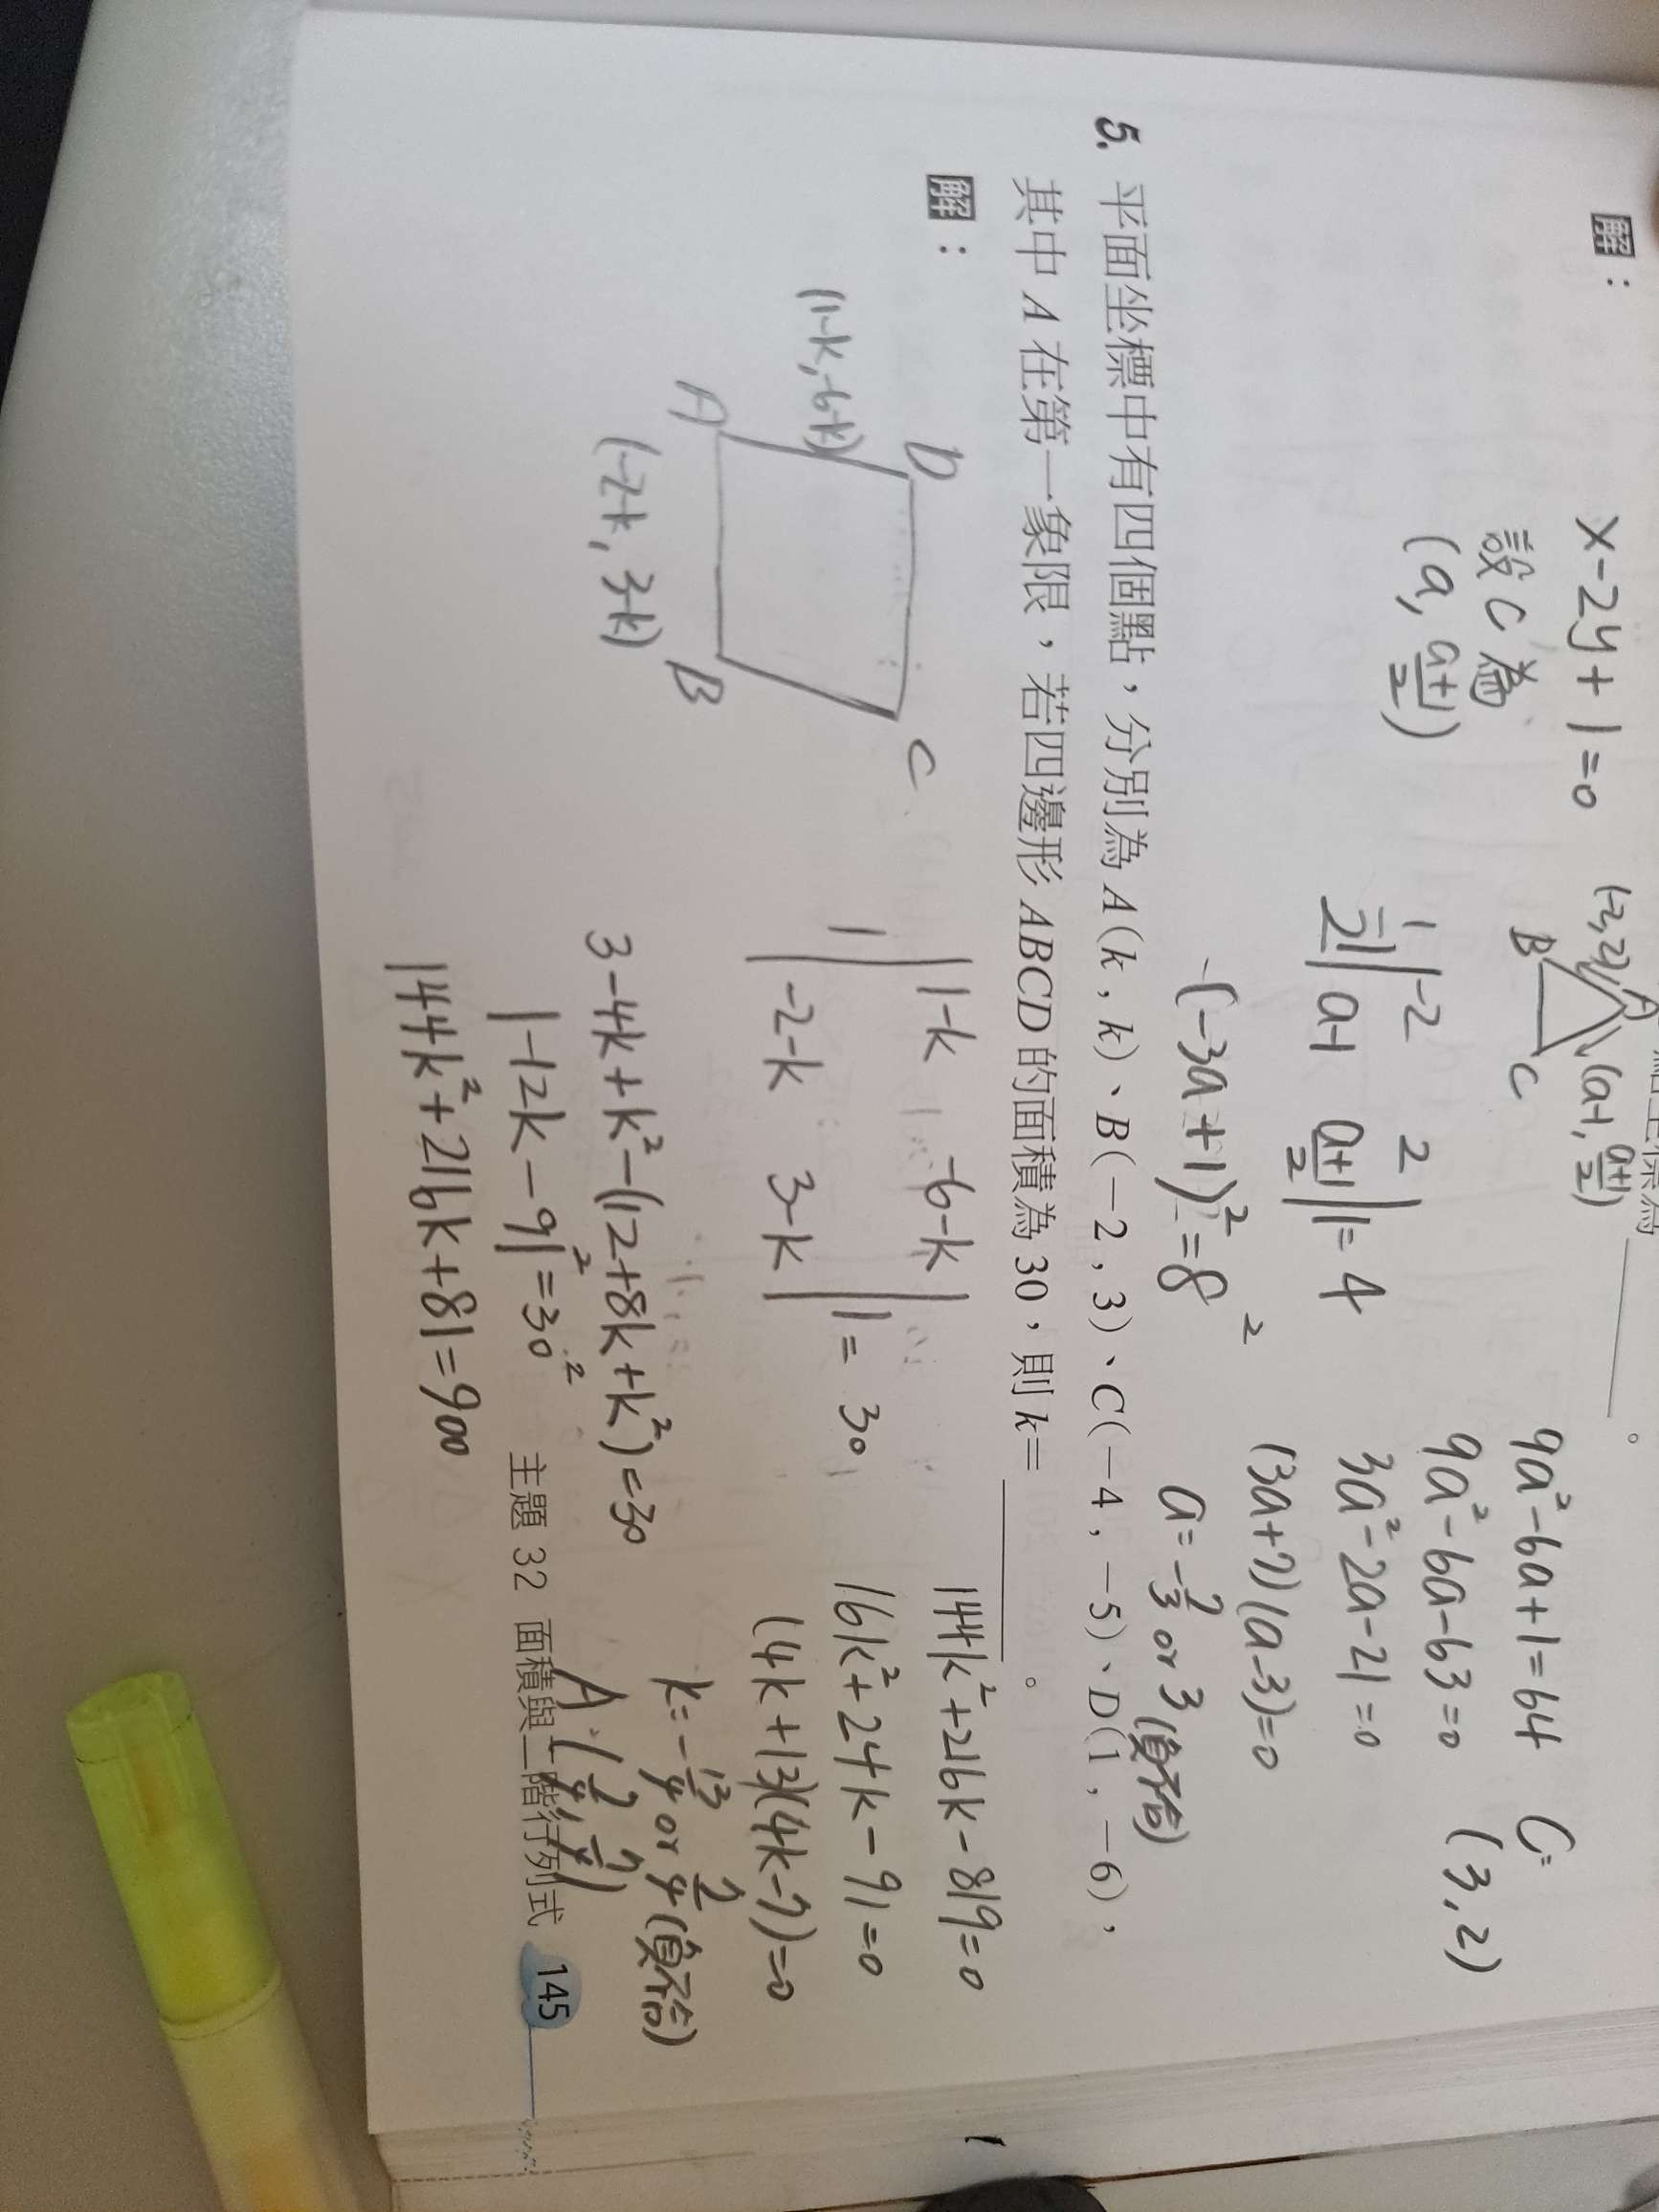 解：
x-2y+1=0
設C為
(a, a+1/2)
A
(-2,2)
(a-1, a+1/2)
B
C
1/2 | -2 2 |
| a-1 a+1/2 | = 4
-(-3a+1)² = 8²
9a²-6a+1=64
9a²-6a-63=0
3a²-2a-21=0
(3a+7)(a-3)=0
a=-7/3 or 3 (負不合)
C=
(3,2)
5. 平面坐標中有四個點，分別為 A(k , k)、B(−2 , 3)、C(−4 , −5)、D(1 , −6)，
其中 A 在第一象限，若四邊形 ABCD 的面積為 30，則 k= ______ 。
解：
D
C
(1-k,-6-k)
A
B
(-2-k, 3-k)
| 1-k -6-k |
| -2-k 3-k | = 30
3-4k+k²-(12+8k+k²)=30
|-12k-9|²=30²
144k²+216k+81=900
144k²+216k-819=0
16k²+24k-91=0
(4k+13)(4k-7)=0
k=-13/4 or 7/4 (負不合)
A:(7/4, 7/4)
主題 32 面積與二階行列式 145